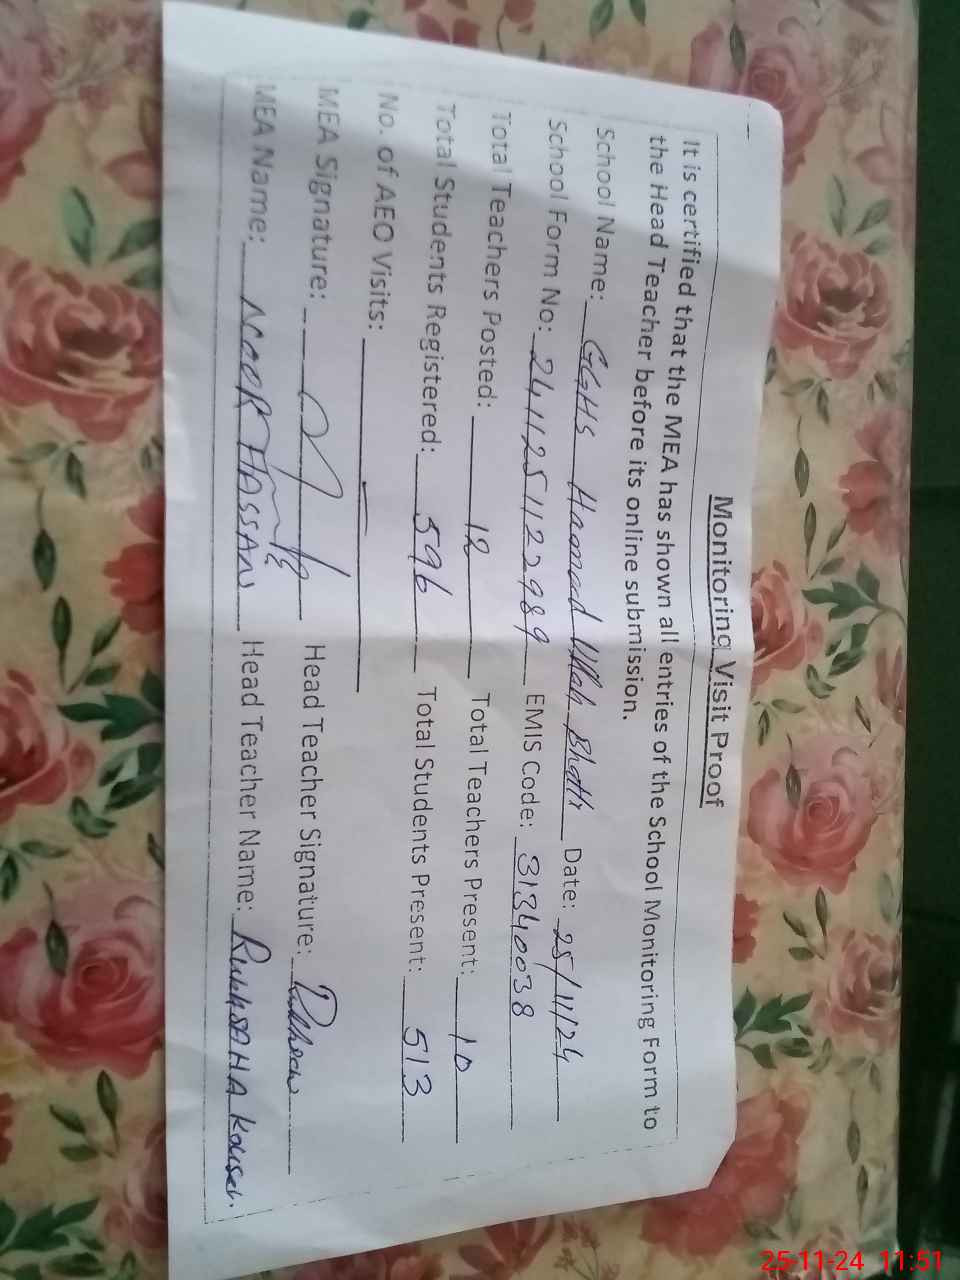 Monitoring Visit Proof
It is certified that the MEA has shown all entries of the School Monitoring Form to
the Head Teacher before its online submission.
School Name: GGHS Hamad Ullah Bhatti Date: 25/11/24
School Form No: 2411251122989 EMIS Code: 31340038
Total Teachers Posted: 12 Total Teachers Present: 10
Total Students Registered: 596 Total Students Present: 513
No. of AEO Visits: —
MEA Signature: Head Teacher Signature:
MEA Name: NOOR HASSAN Head Teacher Name: RukhSAHA Kousar.
25-11-24 11:51